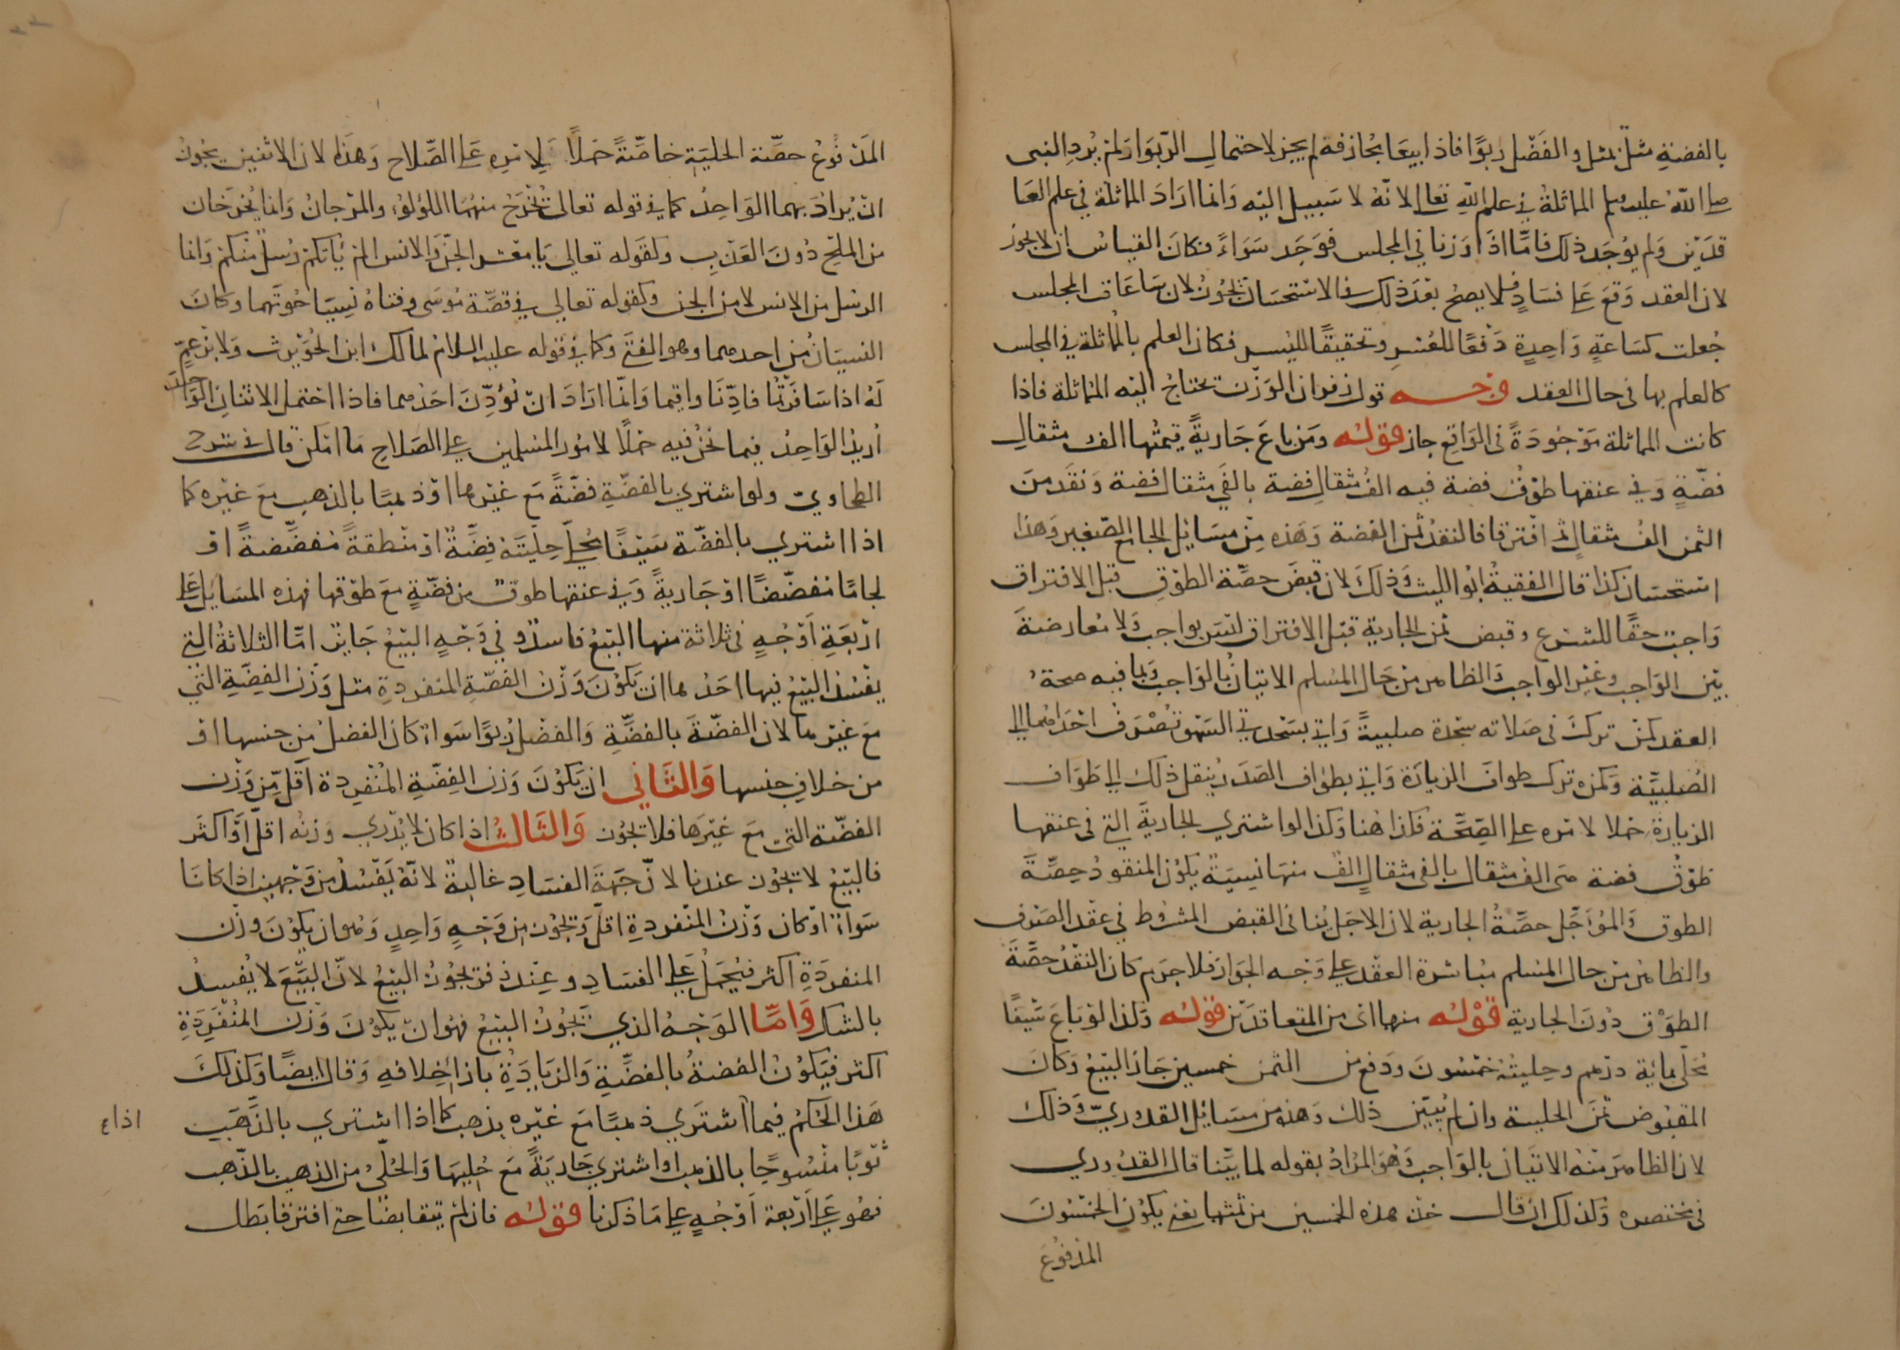 بالفضة مثل بمثل والفضل ربوا فاذا بيعا مجازفة لم يجز لاحتمال الربوا ولم يرد النبي
صلى الله عليه وسلم المماثلة في علم الله تعالى لانه لا سبيل اليه وانما اراد المماثلة في علم العا
قدين ولم يوجد ذلك فاما اذا وزنا في المجلس فوجد سواء فكان القياس ان لا يجوز
لان العقد وقع على فساد فلا يصح بعد ذلك وفي الاستحسان يجوز لان ساعات المجلس
جعلت كساعة واحدة دفعا للعسر وتحقيقا لليسر فكان العلم بالمماثلة في المجلس
كالعلم بها في حال العقد وجه قول زفر ان الوزن يحتاج اليه للمماثلة فاذا
كانت المماثلة موجودة في الواقع جاز قوله ومن باع جارية قيمتها الف مثقال
فضة وفي عنقها طوق فضة فيه الف مثقال فضة بالفي مثقال فضة ونقد من
الثمن الف مثقال ثم افترقا فالنقد ثمن الفضة وهذه من مسائل الجامع الصغير وهذا
استحسان كذا قال الفقيه ابو الليث وذلك لان قبض حصة الطوق قبل الافتراق
واجب حقا للشرع وقبض ثمن الجارية قبل الافتراق ليس بواجب ولا معارضة
بين الواجب وغير الواجب والظاهر من حال المسلم الاتيان بالواجب وبما فيه صحة
العقد كمن ترك في صلاته سجدة صلبية واتى بسجدتي السهو تصرف احداهما الى
الصلبية وكمن ترك طواف الزيارة واتى بطواف الصدر ينقل ذلك الى طواف
الزيارة حملا لامره على الصحة فكذا هنا وكذا لو اشترى الجارية التي في عنقها
طوق فضة هي الف مثقال بالفي مثقال الف منها نسية يكون المنقود حصة
الطوق والمؤجل حصة الجارية لان الاجل ينافي القبض المشروط في عقد الصرف
والظاهر من حال المسلم مباشرة العقد على وجه الجواز فلا جرم كان النقد حصة
الطوق دون الجارية قوله منهما اى من المتعاقدين قوله وكذا لو باع سيفا
محلى بماية درهم وحليته خمسون ودفع من الثمن خمسين جاز البيع وكان
المقبوض ثمن الحلية وان لم يبين ذلك وهذه من مسائل القدوري وذلك
لان الظاهر منه الاتيان بالواجب وهو المراد بقوله لما بينا قال القدوري
في مختصره وكذلك ان قال خذ هذه الخمسين من ثمنها يعني يكون الخمسون
المدفوع
المدفوع حصة الحلية خاصة حملا لامره على الصلاح وهذا لان الاثنين يجوز
ان يراد بهما الواحد كما في قوله تعالى يخرج منهما اللولو والمرجان وانما يخرجان
من الملح دون العذب ولقوله تعالى يا معشر الجن والانس الم ياتكم رسل منكم وانما
الرسل من الانس لا من الجن وكقوله تعالى في قصة موسى وفتاه نسيا حوتهما وكان
النسيان من احدهما وهو الفتى وكما في قوله عليه السلام لمالك ابن الحويرث ولابن عم
له اذا سافرتما فاذنا واقيما وانما اراد ان يؤذن احدهما فاذا احتمل الاثنان الواحد
اريد الواحد فيما نحن فيه حملا لامور المسلمين على الصلاح ما امكن قال في شرح
الطحاوي ولو اشترى بالفضة فضة مع غيرها او ذهبا بالذهب مع غيره كما
اذا اشترى بالفضة سيفا محلى حليته فضة او منطقة مفضضة او
لجاما مفضضا او جارية وفي عنقها طوق من فضة مع طوقها فهذه المسايل على
اربعة اوجه في ثلاثة منها البيع فاسد وفي وجه البيع جايز اما الثلاثة التي
يفسد البيع فيها احدها ان يكون وزن الفضة المنفردة مثل وزن الفضة التي
مع غيرها لان الفضة بالفضة والفضل ربوا سواء كان الفضل من جنسها او
من خلاف جنسها والثاني ان يكون وزن الفضة المنفردة اقل من وزن
الفضة التي مع غيرها فلا يجوز والثالث اذا كان لا يدري وزنه اقل او اكثر
فالبيع لا يجوز عندنا لان جهة الفساد غالبة لانه يفسد من وجهين اذا كانا
سواء او كان وزن المنفردة اقل ويجوز من وجه واحد وهو ان يكون وزن
المنفردة اكثر فيحمل على الفساد وعند زفر يجوز البيع لان البيع لا يفسد
بالشك واما الوجه الذي يجوز البيع فهو ان يكون وزن المنفردة
اكثر فيكون الفضة بالفضة والزيادة بازا خلافه وقال ايضا وكذلك
هذا الحكم فيما اشترى ذهبا مع غيره بذهب كما اذا اشترى بالذهب
ثوبا منسوجا بالذهب او اشترى جارية مع حليها والحلي من الذهب بالذهب
فهو على اربعة اوجه على ما ذكرنا قوله فان لم يتقابضا حتى افترقا بطل